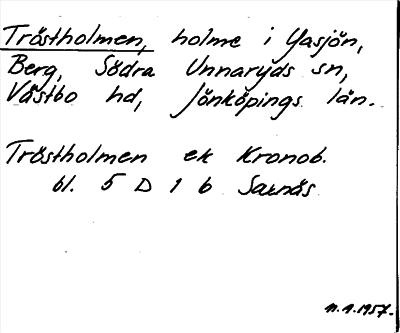 Tröstholmen, holme i Yasjön,
Berg, Södra Unnaryds sn,
Västbo hd, Jönköpings län.
Tröstholmen ek Kronob.
bl. 5 D 1 b Sarnäs
11.1.1957.